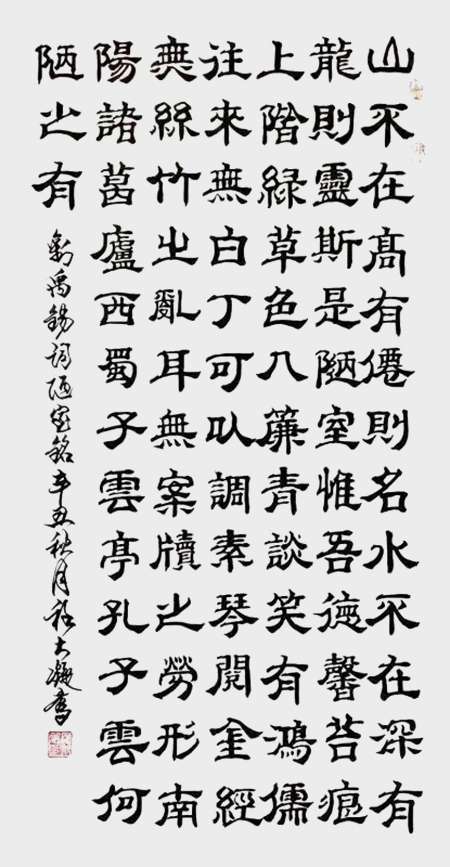 山不在髙有僊則名水不在深有
龍則靈斯是陋室惟吾德馨苔痕
上階緑草色入簾青談笑有鴻儒
往來無白丁可以調素琴閱金經
無絲竹之亂耳無案牘之勞形南
陽諸葛廬西蜀子雲亭孔子雲何
陋之有
劉禹錫詞陋室銘辛丑秋月